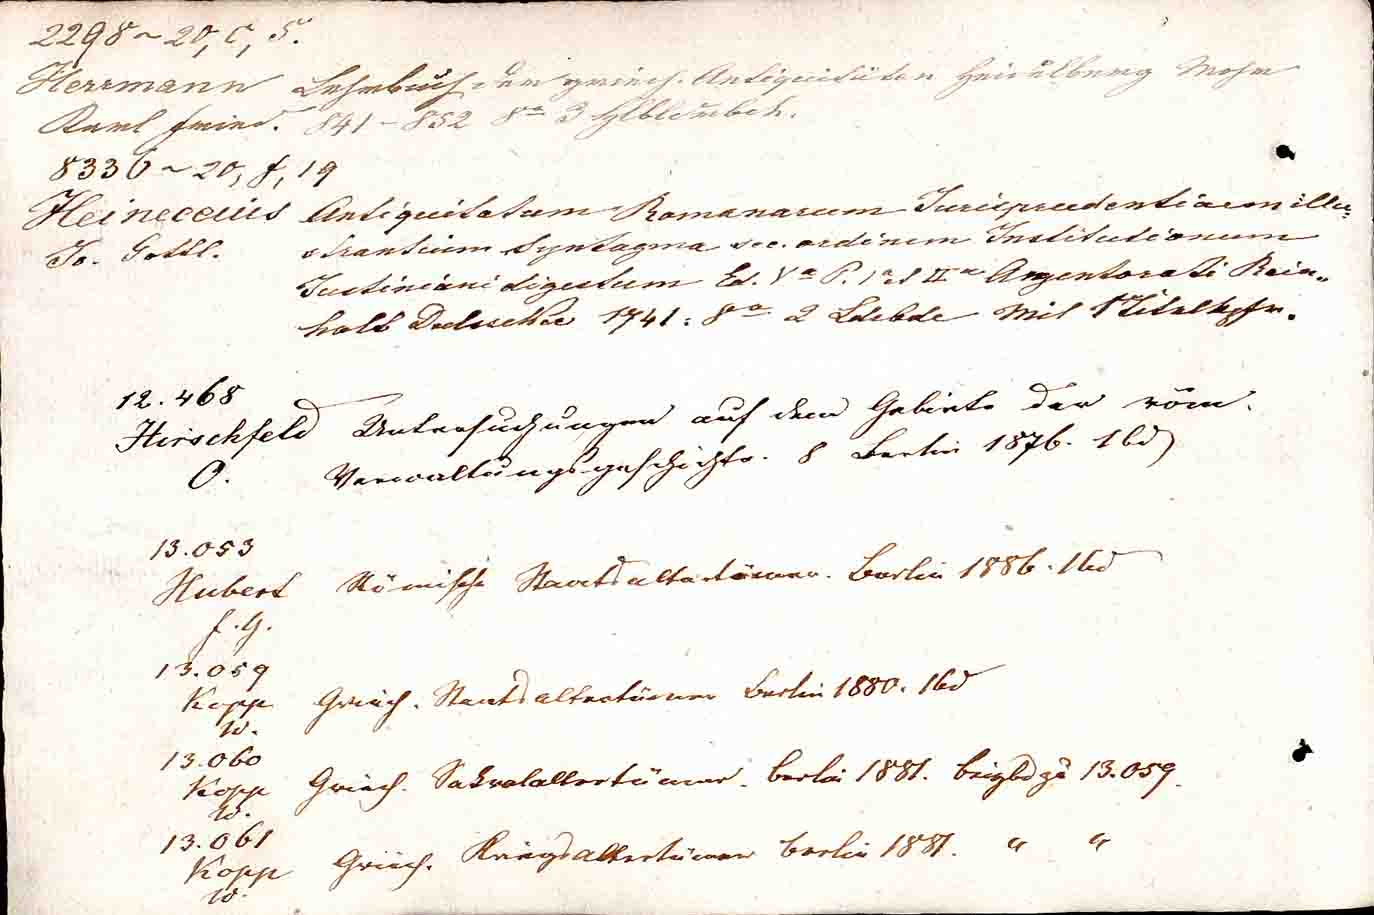 2298 ~ 20, C, 5.
Herrmann Lehrbuch der griech. Antiquitäten Heidelberg Mohr
Karl Fried. 841-852 8° 3 Hlbldrbde.
8336 ~ 20, f, 19
Heineccius Antiquitatum Romanarum Jurisprudentiam illu-
Jo. Gottl. strantium Syntagma sec. ordinem Institutionum
Justiniani digestum Ed. Va P. I et IIa Argentorati Rein-
hold Dulssecker 1741. 8° 2 Ldrbde Mit 1 Titelkpfr.
12.468
Hirschfeld Untersuchungen auf dem Gebiete der röm.
O. Verwaltungsgeschichte. 8 Berlin 1876. 1bd
13.053
Hubert Römische Staatsaltertümer. Berlin 1886. 1bd
F. G.
13.059
Kopp Griech. Staatsaltertümer Berlin 1880. 1bd
W.
13.060
Kopp Griech. Sakralaltertümer. Berlin 1881. beigbd zu 13.059.
W.
13.061
Kopp Griech. Kriegsaltertümer Berlin 1881. " "
W.